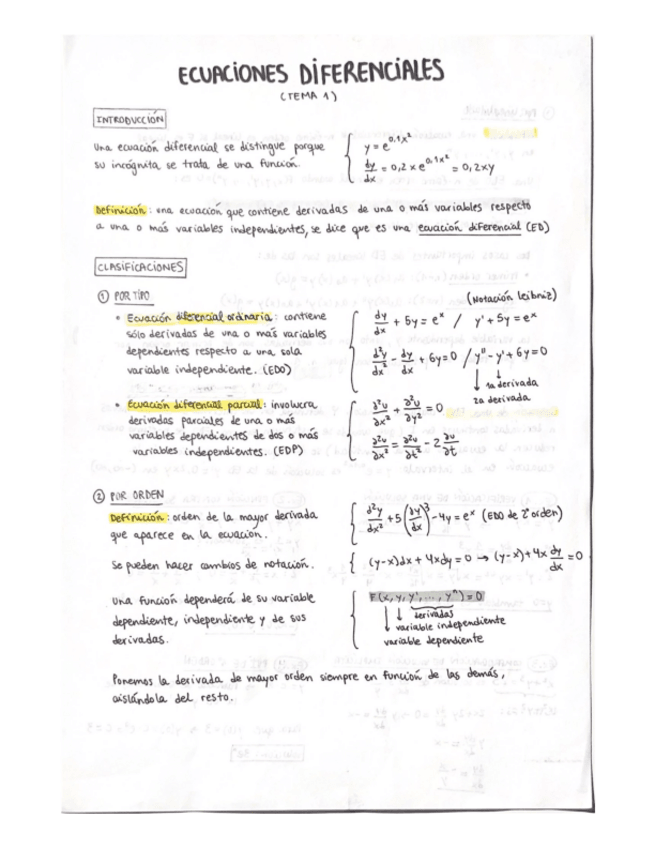 ECUACIONES DIFERENCIALES
(TEMA 1)
INTRODUCCIÓN
Una ecuación diferencial se distingue porque
su incógnita se trata de una función.
y = e^{0,1x²}
dy/dx = 0,2 x e^{0,1x²} = 0,2xy
Definición: una ecuación que contiene derivadas de una o más variables respecto
a una o más variables independientes, se dice que es una ecuación diferencial (ED)
CLASIFICACIONES
① POR TIPO
(Notación Leibniz)
• Ecuación diferencial ordinaria: contiene
sólo derivadas de una o más variables
dependientes respecto a una sola
variable independiente. (EDO)
dy/dx + 5y = eˣ / y' + 5y = eˣ
d²y/dx² - dy/dx + 6y = 0 / y'' - y' + 6y = 0
1a derivada
2a derivada
• Ecuación diferencial parcial: involucra
derivadas parciales de una o más
variables dependientes de dos o más
variables independientes. (EDP)
∂²u/∂x² + ∂²u/∂y² = 0
∂²u/∂x² = ∂²u/∂t² - 2 ∂u/∂t
② POR ORDEN
Definición: orden de la mayor derivada
que aparece en la ecuación.
d²y/dx² + 5(dy/dx)³ - 4y = eˣ (EDO de 2º orden)
Se pueden hacer cambios de notación.
(y-x)dx + 4xdy = 0 → (y-x) + 4x dy/dx = 0
Una función dependerá de su variable
dependiente, independiente y de sus
derivadas.
F(x, y, y', ..., yⁿ) = 0
derivadas
variable independiente
variable dependiente
Ponemos la derivada de mayor orden siempre en función de las demás,
aislándola del resto.